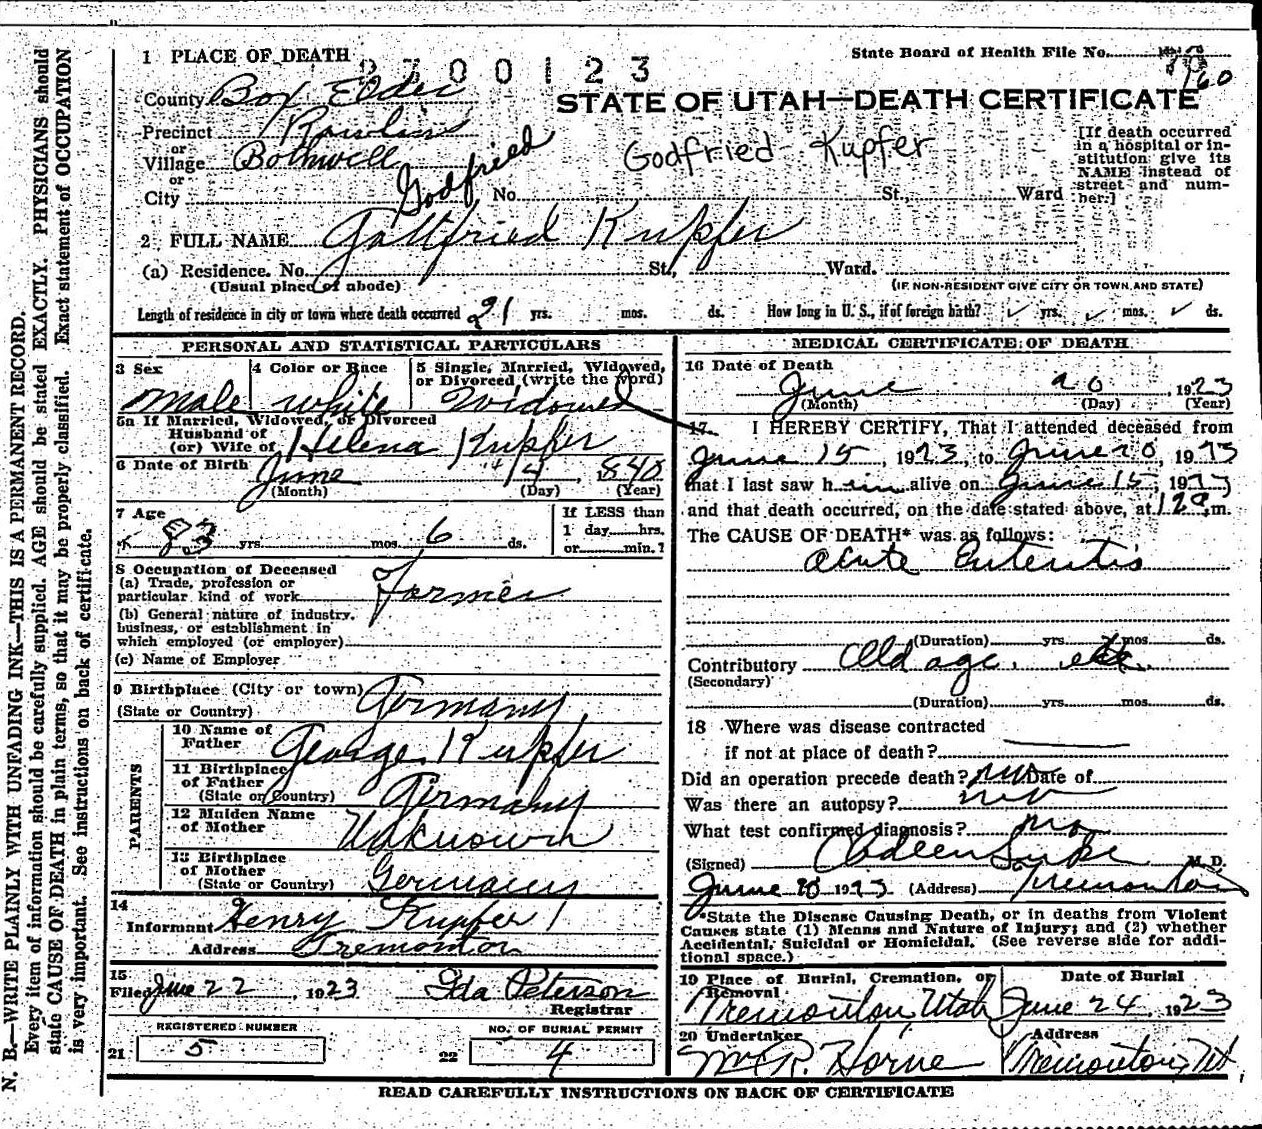 1 PLACE OF DEATH
2300123
State Board of Health File No.
60
County Box Elder
STATE OF UTAH—DEATH CERTIFICATE
Precinct Rawlins
or
Village Bothwell
or
City
Godfried
No. St., Ward
Godfried Kupfer
[If death occurred
in a hospital or in-
stitution give its
NAME instead of
street and num-
ber.]
2 FULL NAME Gottfried Kupfer
(a) Residence. No. St., Ward.
(Usual place of abode)
(IF NON-RESIDENT GIVE CITY OR TOWN AND STATE)
Length of residence in city or town where death occurred 21 yrs. mos. ds. How long in U. S., if of foreign birth? ✓ yrs. ✓ mos. ✓ ds.
PERSONAL AND STATISTICAL PARTICULARS
3 Sex
Male
4 Color or Race
white
5 Single, Married, Widowed,
or Divorced (write the word)
Widowed
5a If Married, Widowed, or Divorced
Husband of
(or) Wife of Helena Kupfer
6 Date of Birth June 14, 1840
(Month) (Day) (Year)
7 Age
83 yrs. mos. 6 ds.
If LESS than
1 day hrs.
or min.?
8 Occupation of Deceased
(a) Trade, profession or
particular kind of work Farmer
(b) General nature of industry,
business, or establishment in
which employed (or employer)
(c) Name of Employer
9 Birthplace (City or town)
(State or Country) Germany
PARENTS
10 Name of
Father George Kupfer
11 Birthplace
of Father
(State or Country) Germany
12 Maiden Name
of Mother Unknown
13 Birthplace
of Mother
(State or Country) Germany
14
Informant Henry Kupfer
Address Tremonton
15
Filed June 22, 1923 Ida Peterson
Registrar
REGISTERED NUMBER
21 5
NO. OF BURIAL PERMIT
22 4
MEDICAL CERTIFICATE OF DEATH
16 Date of Death
June 20, 1923
(Month) (Day) (Year)
17 I HEREBY CERTIFY, That I attended deceased from
June 15, 1923, to June 20, 1923
that I last saw him alive on June 15, 1923
and that death occurred, on the date stated above, at m.
The CAUSE OF DEATH* was as follows:
Acute Enteritis
(Duration) yrs. mos. ds.
Contributory Old age.
(Secondary)
(Duration) yrs. mos. ds.
18 Where was disease contracted
if not at place of death?
Did an operation precede death? no Date of
Was there an autopsy? no
What test confirmed diagnosis? no
(Signed) M. D.
June 20 1923 (Address) Tremonton
*State the Disease Causing Death, or in deaths from Violent
Causes state (1) Means and Nature of Injury; and (2) whether
Accidental, Suicidal or Homicidal. (See reverse side for addi-
tional space.)
19 Place of Burial, Cremation, or
Removal
Tremonton, Utah
Date of Burial
June 24, 1923
20 Undertaker
Wm R. Horne
Address
Tremonton, Ut.
READ CAREFULLY INSTRUCTIONS ON BACK OF CERTIFICATE
N. B.—WRITE PLAINLY WITH UNFADING INK—THIS IS A PERMANENT RECORD.
Every item of information should be carefully supplied. AGE should be stated EXACTLY. PHYSICIANS should
state CAUSE OF DEATH in plain terms, so that it may be properly classified. Exact statement of OCCUPATION
is very important. See instructions on back of certificate.